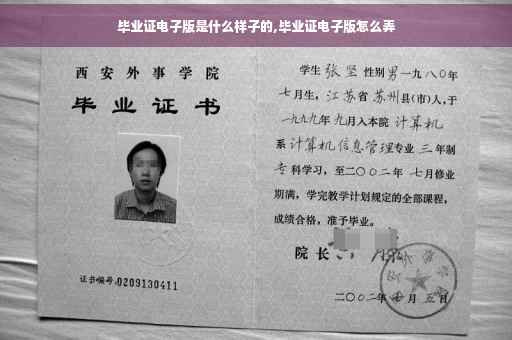 毕业证电子版是什么样子的,毕业证电子版怎么弄
西安外事学院
毕业证书
证书编号:0209130411
学生 张坚 性别 男 一九八〇年
七月生，江苏省苏州县(市)人,于
一九九九年九月入本院 计算机
系 计算机信息管理专业 三 年制
专科学习，至二〇〇二年 七月修业
期满，学完教学计划规定的全部课程，
成绩合格，准予毕业。
院长
二〇〇二年 月五日